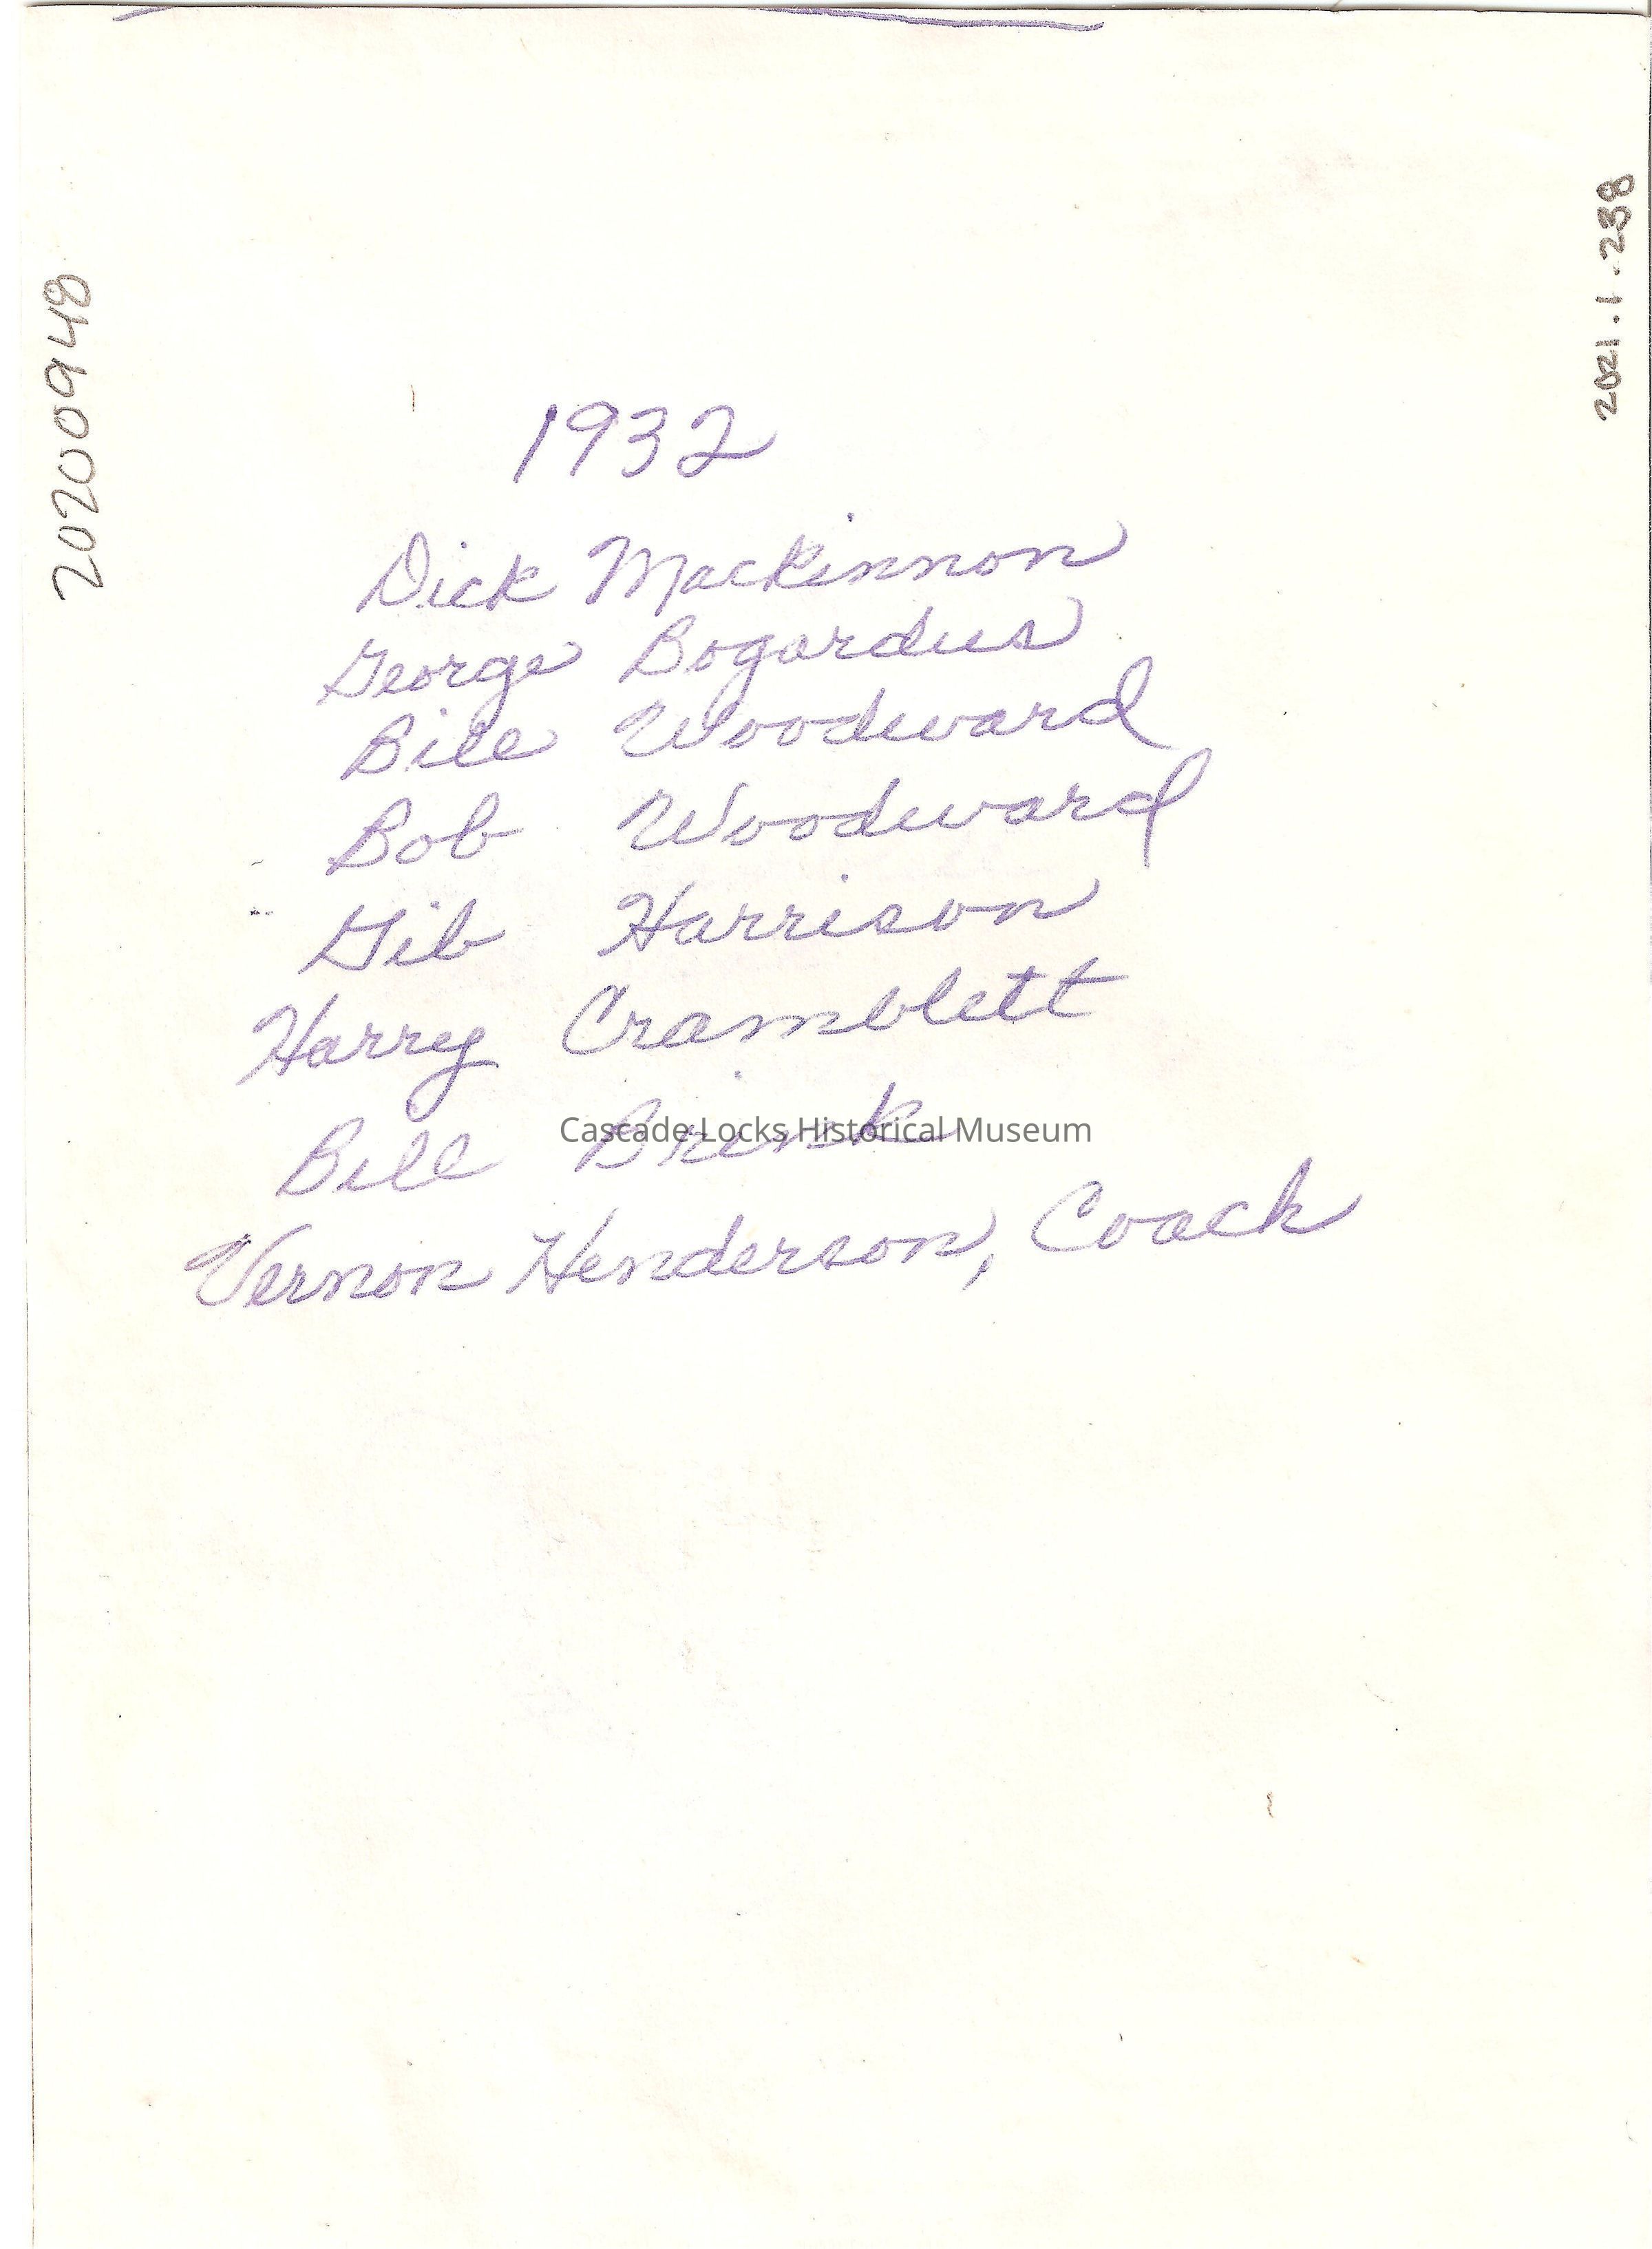 20200948
2021.1.238
1932
Dick MacKinnon
George Bogardus
Bill Woodward
Bob Woodward
Gib Harrison
Harry Cramblett
Bill Brink
Cascade Locks Historical Museum
Vernon Henderson, Coach